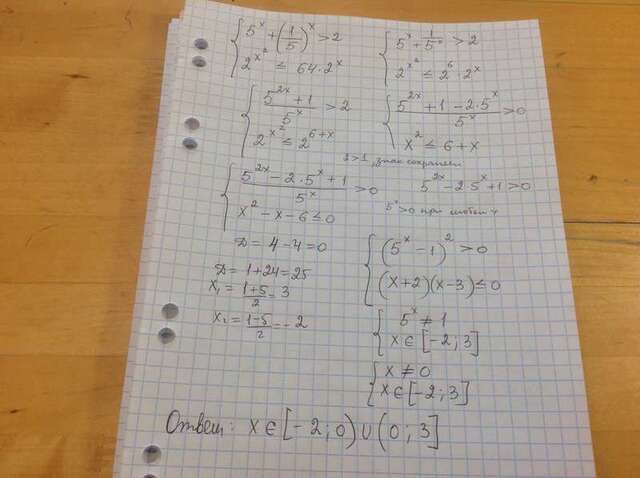 { 5^x + (1/5)^x > 2
2^(x^2) ≤ 64·2^x
{ 5^x + 1/5^x > 2
2^(x^2) ≤ 2^6·2^x
{ (5^(2x) + 1)/5^x > 2
2^(x^2) ≤ 2^(6+x)
{ (5^(2x) + 1 - 2·5^x)/5^x > 0
x^2 ≤ 6 + x
2 > 1, знак сохраняем
{ (5^(2x) - 2·5^x + 1)/5^x > 0
x^2 - x - 6 ≤ 0
5^(2x) - 2·5^x + 1 > 0
5^x > 0 при любом x
D = 4 - 4 = 0
D = 1 + 24 = 25
x₁ = (1+5)/2 = 3
x₂ = (1-5)/2 = -2
{ (5^x - 1)^2 > 0
(x+2)(x-3) ≤ 0
{ 5^x ≠ 1
x ∈ [-2; 3]
{ x ≠ 0
x ∈ [-2; 3]
Ответ: x ∈ [-2; 0) ∪ (0; 3]